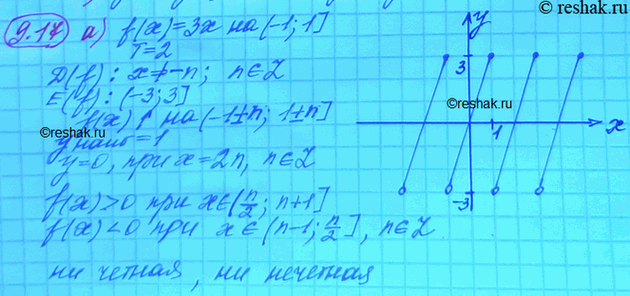 ©reshak.ru
9.17 а) f(x)=3x на (-1; 1]
T=2
D(f): x≠-n; n∈Z
E(f): (-3; 3]
f(x)↑ на (-1±n; 1±n]
©reshak.ru
yнаиб=1
y=0, при x=2n, n∈Z
f(x)>0 при x∈(n/2; n+1]
f(x)<0 при x∈(n-1; n/2], n∈Z
ни четная, ни нечетная
y
3
©reshak.ru
1
x
-3